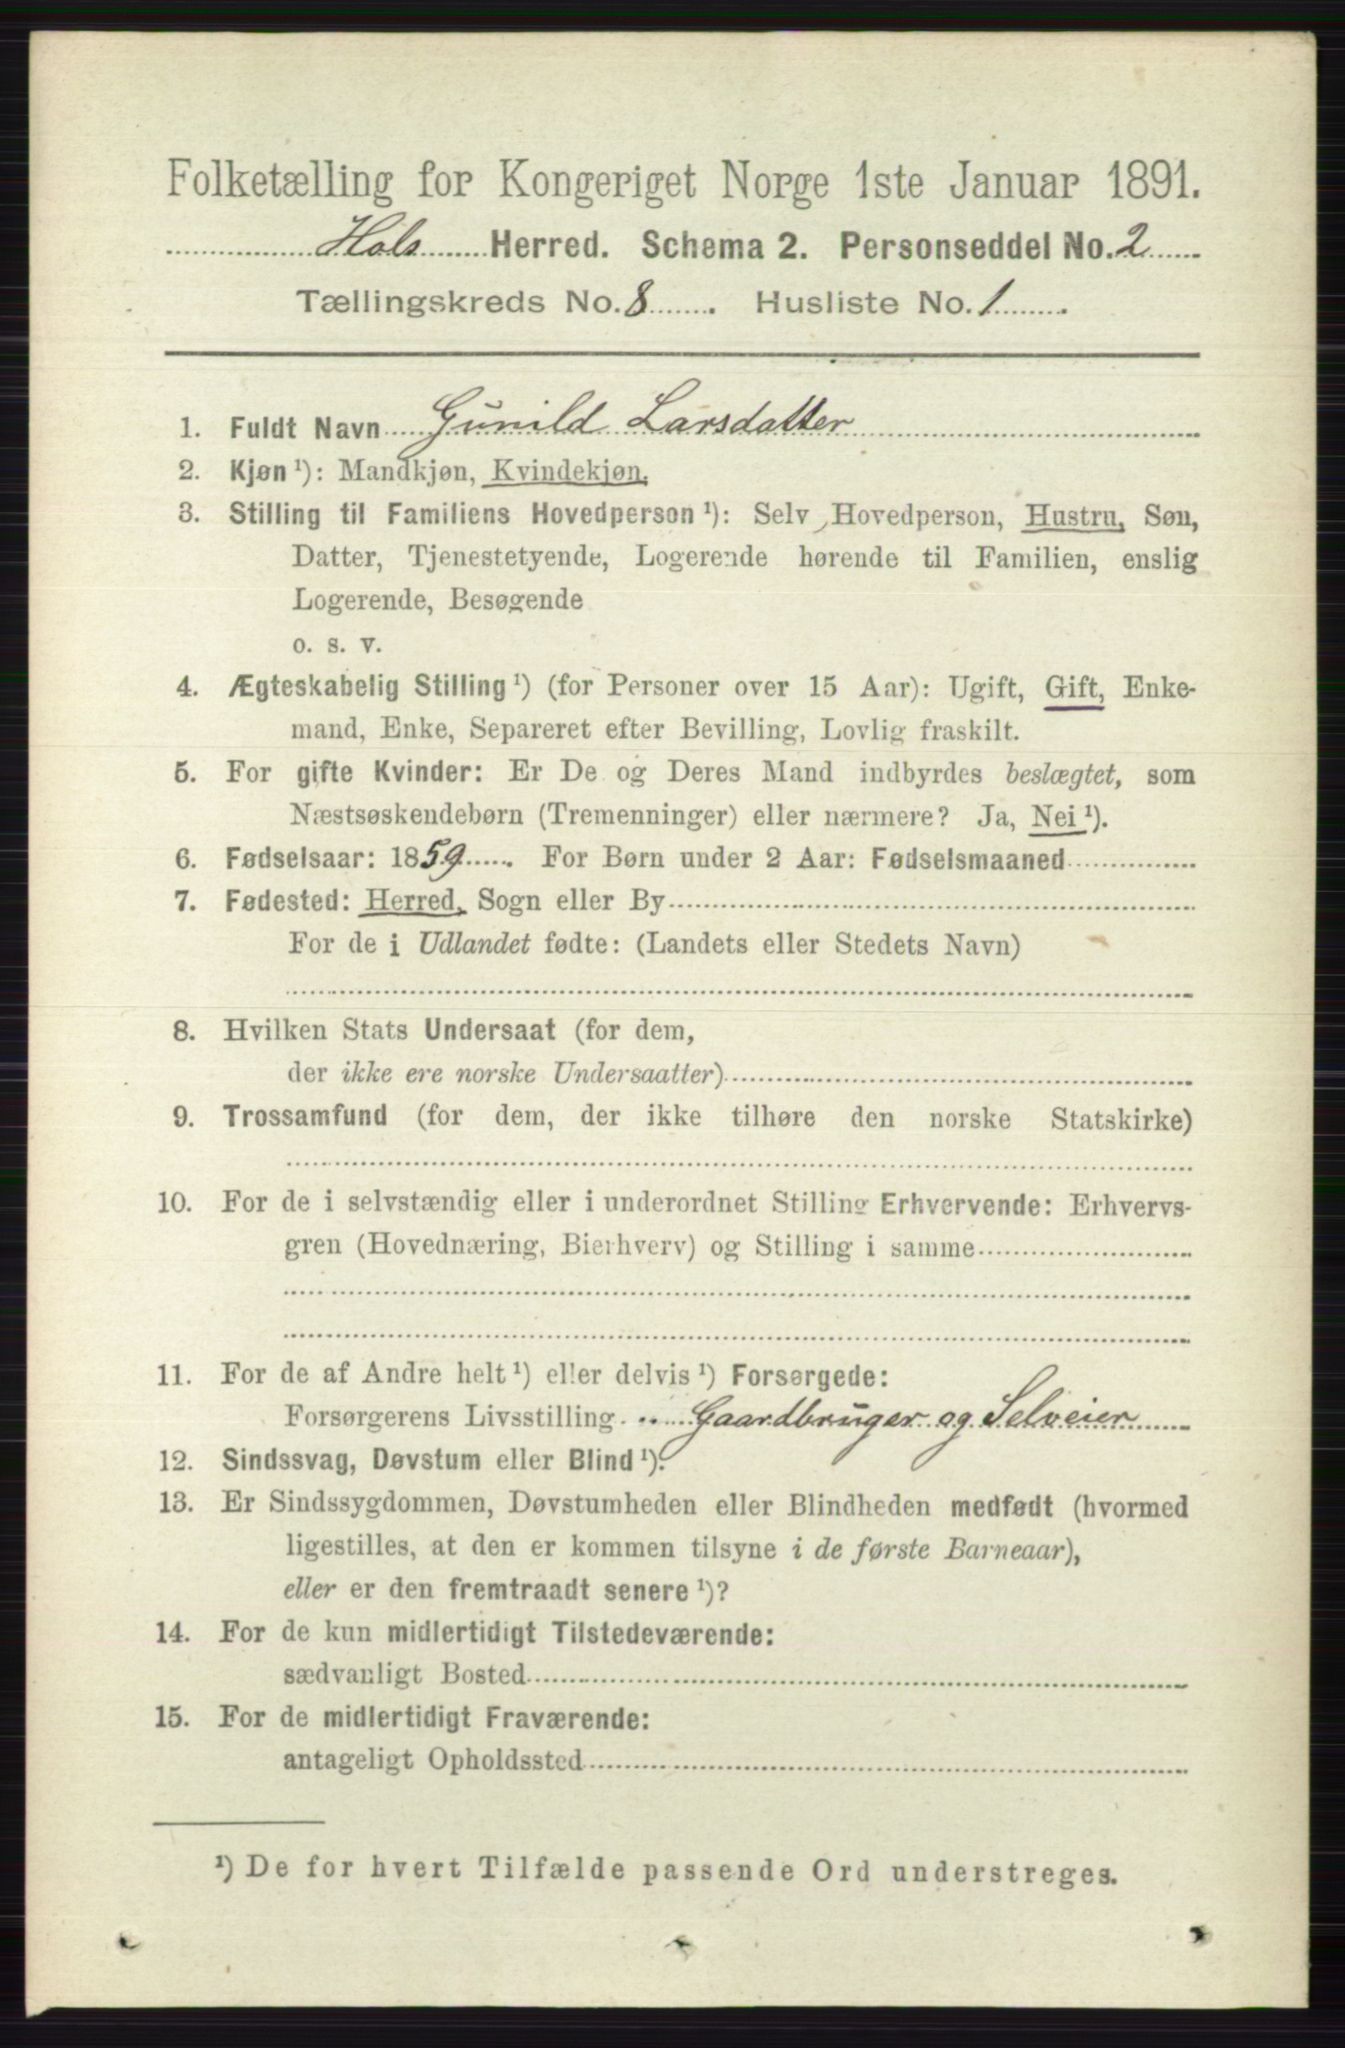 Folketælling for Kongeriget Norge 1ste Januar 1891.
Hols Herred. Schema 2. Personseddel No. 2
Tællingskreds No. 8. Husliste No. 1.
1. Fuldt Navn Gunild Larsdatter
2. Kjøn ¹): Mandkjøn, Kvindekjøn.
3. Stilling til Familiens Hovedperson ¹): Selv Hovedperson, Hustru, Søn,
Datter, Tjenestetyende, Logerende hørende til Familien, enslig
Logerende, Besøgende
o. s. v.
4. Ægteskabelig Stilling ¹) (for Personer over 15 Aar): Ugift, Gift, Enke-
mand, Enke, Separeret efter Bevilling, Lovlig fraskilt.
5. For gifte Kvinder: Er De og Deres Mand indbyrdes beslægtet, som
Næstsøskendebørn (Tremenninger) eller nærmere? Ja, Nei ¹).
6. Fødselsaar: 1859. For Børn under 2 Aar: Fødselsmaaned
7. Fødested: Herred, Sogn eller By
For de i Udlandet fødte: (Landets eller Stedets Navn)
8. Hvilken Stats Undersaat (for dem,
der ikke ere norske Undersaatter)
9. Trossamfund (for dem, der ikke tilhøre den norske Statskirke)
10. For de i selvstændig eller i underordnet Stilling Erhvervende: Erhvervs-
gren (Hovednæring, Bierhverv) og Stilling i samme
11. For de af Andre helt ¹) eller delvis ¹) Forsørgede:
Forsørgerens Livsstilling Gaardbruger og Selveier
12. Sindssvag, Døvstum eller Blind ¹).
13. Er Sindssygdommen, Døvstumheden eller Blindheden medfødt (hvormed
ligestilles, at den er kommen tilsyne i de første Barneaar),
eller er den fremtraadt senere ¹)?
14. For de kun midlertidigt Tilstedeværende:
sædvanligt Bosted
15. For de midlertidigt Fraværende:
antageligt Opholdssted
¹) De for hvert Tilfælde passende Ord understreges.